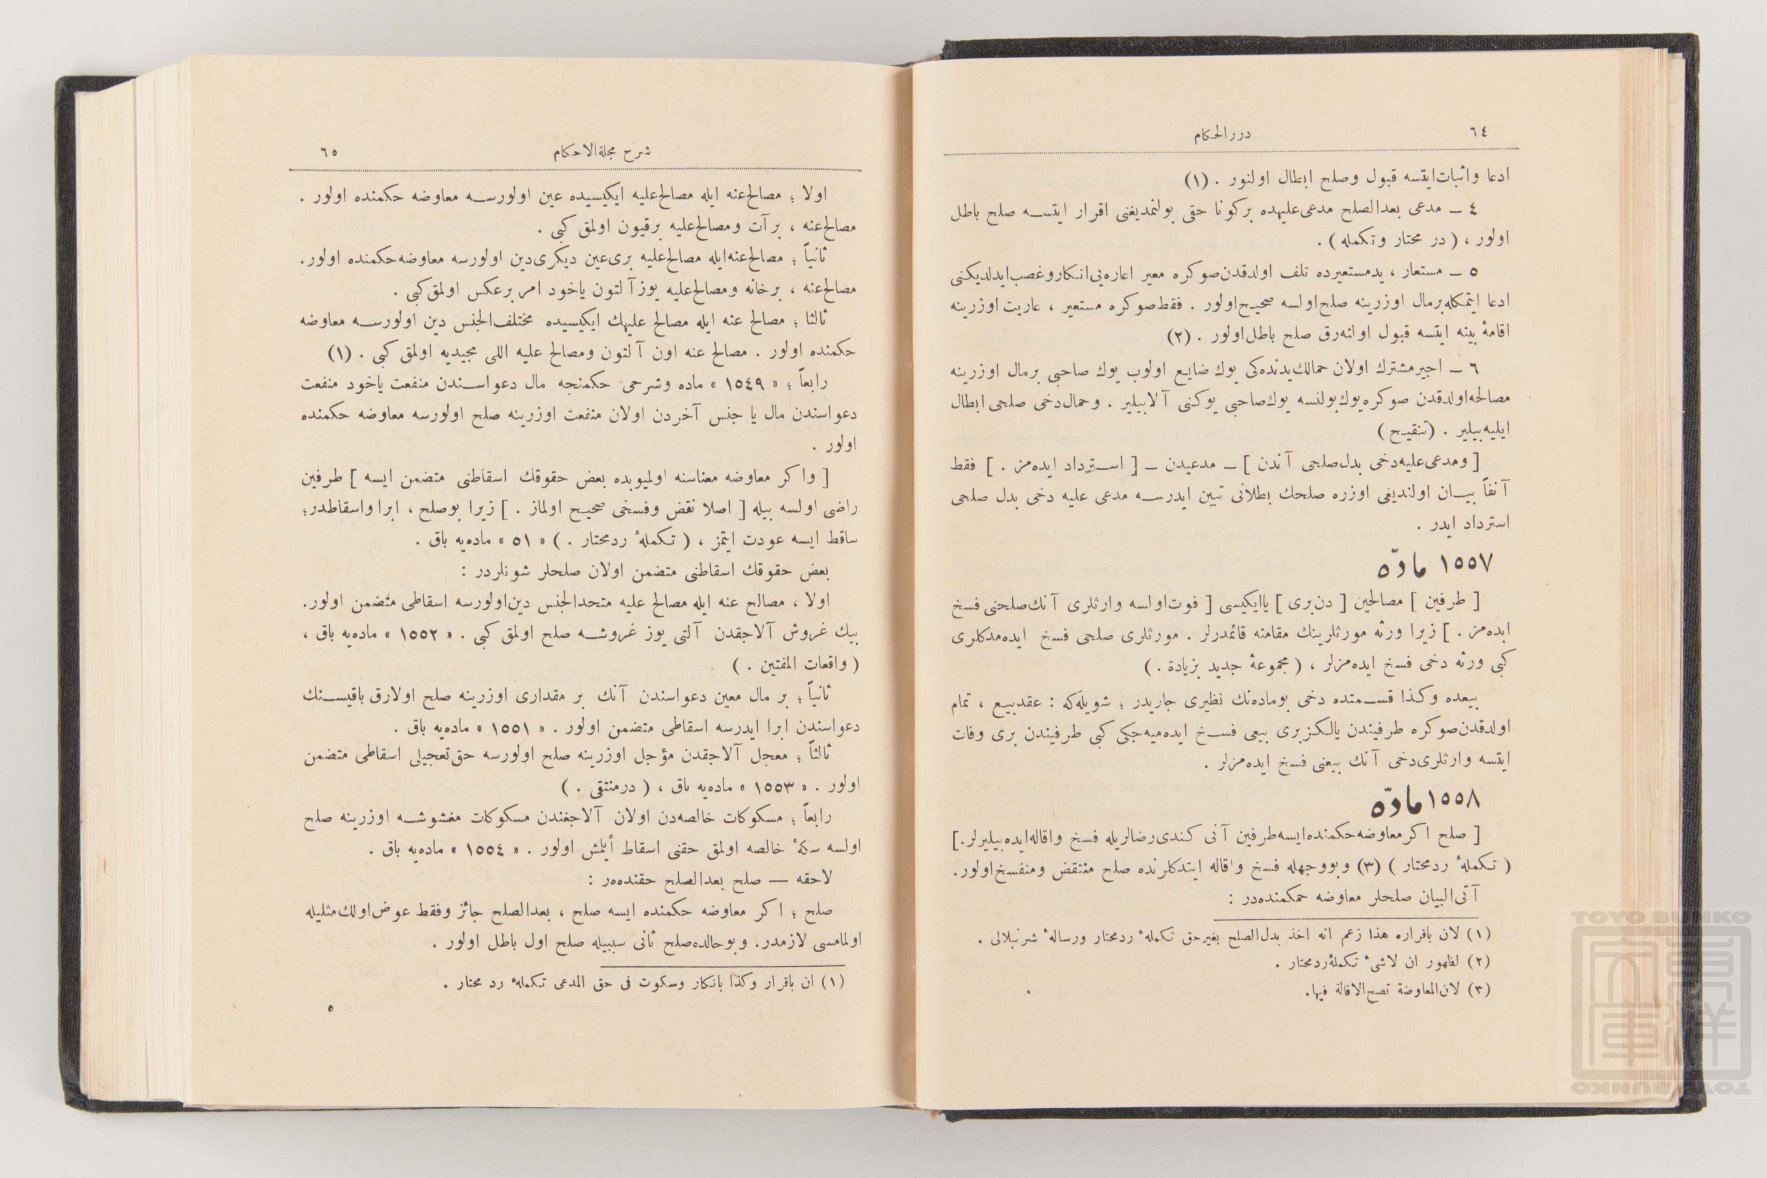 ٦٤
دررالحكام
ادعا واثبات‌ایتسه قبول وصلح ابطال اولنور . (١)
٤ ــ مدعی بعدالصلح مدعی‌علیهده برکونا حقی بولنمدیغنی اقرار ایتســه صلح باطل
اولور ، ( در مختار وتکمله ) .
٥ ــ مستعار ، یدمستعیرده تلف اولدقدن‌صوکره معیر اعاره‌یی‌انکاروغصب‌ایدلدیکنی
ادعا ایتمکله‌برمال اوزرینه صلح‌اولسه صحیح‌اولور . فقط‌صوکره مستعیر ، عاریت اوزرینه
اقامهٔ بینه ایتسه قبول اولنه‌رق صلح باطل‌اولور . (٢)
٦ ــ اجیرمشترك اولان حمالك‌یدنده‌کی یوك ضایع اولوب یوك صاحبی برمال اوزرینه
مصالحه‌اولدقدن صوکره‌یوك‌بولنسه یوك‌صاحبی یوکنی آلابیلیر . وحمال‌دخی صلحی ابطال
ایلیه‌بیلیر . (تنقیح )
[ ومدعی‌علیه‌دخی بدل‌صلحی آندن ] ــ مدعیدن ــ [ اســترداد ایده‌مز . ] فقط
آنفاً بیــان اولندیغی اوزره صلحك بطلانی تبین ایدرســه مدعی علیه دخی بدل صلحی
استرداد ایدر .
١٥٥٧ مادّه
[ طرفین ] مصالحین [ دن‌بری ] یاایکیسی [ فوت‌اولسه وارثلری آنك‌صلحنی فسخ
ایده‌مز . ] زیرا ورثه مورثلرینك مقامنه قائمدرلر . مورثلری صلحی فسخ ایده‌مدکلری
کبی ورثه دخی فسخ ایده‌مزلر ، ( مجموعهٔ جدید بزیادة . )
بیعده وکذا قســمتده دخی بوماده‌نك نظیری جاریدر ؛ شویله‌که : عقدبیع ، تمام
اولدقدن‌صوکره طرفیندن یالکزبری بیعی فســخ ایده‌میه‌جکی کبی طرفیندن بری وفات
ایتسه وارثلری‌دخی آنك بیعنی فسخ ایده‌مزلر .
١٥٥٨ مادّه
[ صلح اکرمعاوضه‌حکمنده‌ایسه‌طرفین آنی کندی‌رضالریله فسخ واقاله‌ایده‌بیلیرلر.]
( تکملهٔ ردمختار ) (٣) وبووجهله فسخ واقاله ایتدکلرنده صلح منتقض ومنفسخ‌اولور.
آتی‌البیان صلحلر معاوضه حمکمنده‌در :
(١) لان باقراره هذا زعم انه اخذ بدل‌الصلح بغیرحق تکملهٔ ردمختار ورسالهٔ شرنبلالی .
(٢) لظهور ان لاشیٔ تکملهٔ‌ردمختار .
(٣) لان‌المعاوضة تصح‌الاقالة فیها.
شرح مجلةالاحكام
٦٥
اولا ؛ مصالح‌عنه ایله مصالح‌علیه ایکیسیده عین اولورســه معاوضه حکمنده اولور .
مصالح‌عنه ، برآت ومصالح‌علیه برقیون اولمق کبی .
ثانیاً ؛ مصالح‌عنه‌ایله مصالح‌علیه بری‌عین دیکری‌دین اولورسه معاوضه‌حکمنده اولور.
مصالح‌عنه ، برخانه ومصالح‌علیه یوزآلتون یاخود امر برعکس اولمق‌کبی .
ثالثا ؛ مصالح عنه ایله مصالح علیهك ایکیسیده مختلف‌الجنس دین اولورســه معاوضه
حکمنده اولور . مصالح عنه اون آلتون ومصالح علیه اللی مجیدیه اولمق کبی . (١)
رابعاً ؛ « ١٥٤٩ » ماده وشرحی حکمنجه مال دعواســندن منفعت یاخود منفعت
دعواسندن مال یا جنس آخردن اولان منفعت اوزرینه صلح اولورسه معاوضه حکمنده
اولور .
[ واکر معاوضه معناسنه اولمیوبده بعض حقوقك اسقاطنی متضمن ایسه ] طرفین
راضی اولسه بیله [ اصلا نقض وفسخی صحیح اولماز . ] زیرا بوصلح ، ابرا واسقاطدر؛
ساقط ایسه عودت ایتمز ، ( تکملهٔ ردمختار . ) « ٥١ » ماده‌یه باق .
بعض حقوقك اسقاطنی متضمن اولان صلحلر شونلردر :
اولا ، مصالح عنه ایله مصالح علیه متحدالجنس دین‌اولورسه اسقاطی متضمن اولور.
بیك غروش آلاجقدن آلتی یوز غروشــه صلح اولمق کبی . « ١٥٥٢ » ماده‌یه باق ،
( واقعات المفتین . )
ثانیاً ؛ بر مال معین دعواسندن آنك بر مقداری اوزرینه صلح اولارق باقیســنك
دعواسندن ابرا ایدرسه اسقاطی متضمن اولور . « ١٥٥١ » ماده‌یه باق .
ثالثاً ؛ معجل آلاجقدن مؤجل اوزرینه صلح اولورسه حق‌تعجیلی اسقاطی متضمن
اولور . « ١٥٥٣ » ماده‌یه باق ، ( درمنتقی . )
رابعاً ؛ مسکوکات خالصه‌دن اولان آلاجغندن مسکوکات مغشوشــه اوزرینه صلح
اولسه سکهٔ خالصه اولمق حقنی اسقاط أیلمش اولور . « ١٥٥٤ » ماده‌یه باق .
لاحقه — صلح بعدالصلح حقنده‌در :
صلح ؛ اکر معاوضه حکمنده ایسه صلح ، بعدالصلح جائز وفقط عوض‌اولك‌مثلیله
اولمامسی لازمدر. وبوحالده‌صلح ثانی سببیله صلح اول باطل اولور .
(١) ان باقرار وکذا بانکار وسکوت فی حق المدعی تکملهٔ رد مختار .
٥
TOYO BUNKO
TOYO BUNKO